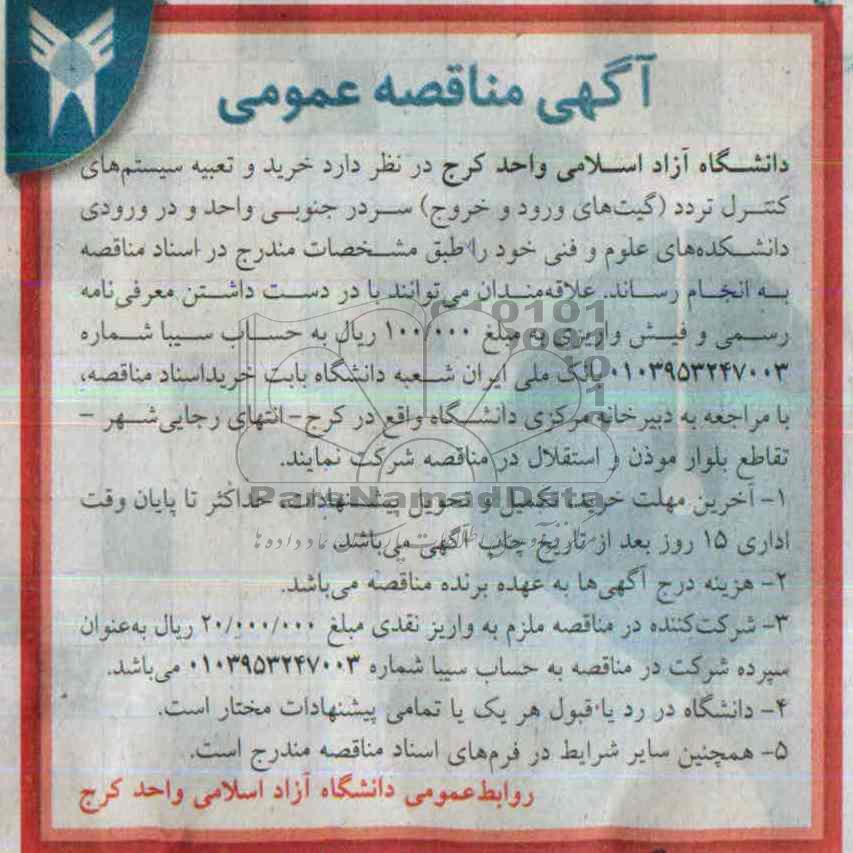 آگهی مناقصه عمومی
دانشگاه آزاد اسلامی واحد کرج در نظر دارد خرید و تعبیه سیستم‌های
کنترل تردد (گیت‌های ورود و خروج) سردر جنوبی واحد و در ورودی
دانشکده‌های علوم و فنی خود را طبق مشخصات مندرج در اسناد مناقصه
به انجام رساند. علاقه‌مندان می‌توانند با در دست داشتن معرفی‌نامه
رسمی و فیش واریزی به مبلغ ۱۰۰/۰۰۰ ریال به حساب سیبا شماره
۰۱۰۳۹۵۳۲۴۷۰۰۳ بانک ملی ایران شعبه دانشگاه بابت خرید اسناد مناقصه،
با مراجعه به دبیرخانه مرکزی دانشگاه واقع در کرج - انتهای رجایی‌شهر -
تقاطع بلوار موذن و استقلال در مناقصه شرکت نمایند.
۱- آخرین مهلت خرید، تکمیل و تحویل پیشنهادات، حداکثر تا پایان وقت
اداری ۱۵ روز بعد از تاریخ چاپ آگهی می‌باشد.
۲- هزینه درج آگهی‌ها به عهده برنده مناقصه می‌باشد.
۳- شرکت‌کننده در مناقصه ملزم به واریز نقدی مبلغ ۲۰/۰۰۰/۰۰۰ ریال به‌عنوان
سپرده شرکت در مناقصه به حساب سیبا شماره ۰۱۰۳۹۵۳۲۴۷۰۰۳ می‌باشد.
۴- دانشگاه در رد یا قبول هر یک یا تمامی پیشنهادات مختار است.
۵- همچنین سایر شرایط در فرم‌های اسناد مناقصه مندرج است.
روابط‌عمومی دانشگاه آزاد اسلامی واحد کرج
ParsNamadData